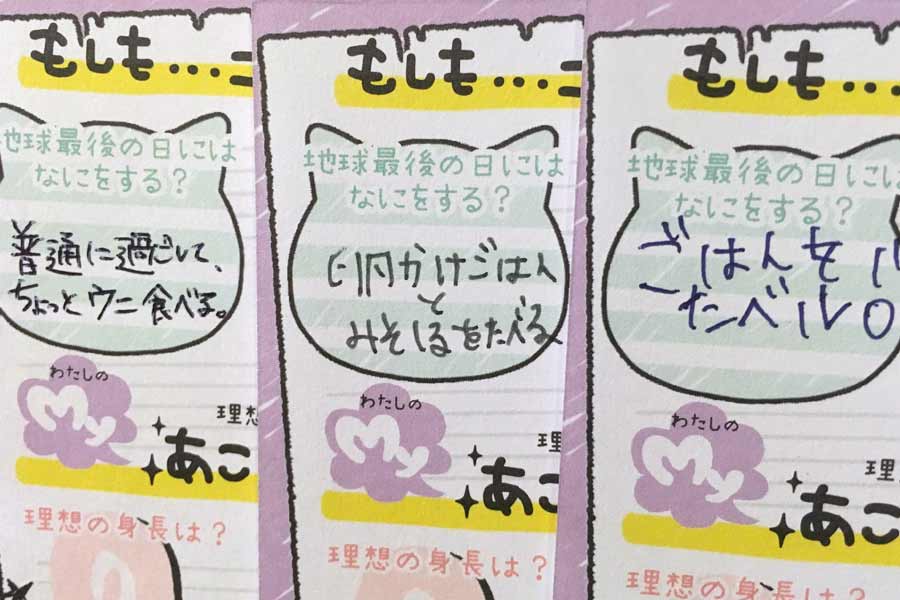 もしも…こ
地球最後の日には
なにをする？
普通に過ごして、
ちょっとウニ食べる。
わたしの
My
理想
あこ
理想の身長は？
もしも…こ
地球最後の日には
なにをする？
卵かけごはん
と
みそしるをたべる
わたしの
My
理
あこ
理想の身長は？
もしも…
地球最後の日には
なにをする？
ごはんを
たべル。
わたしの
My
理
あこ
理想の身長は？